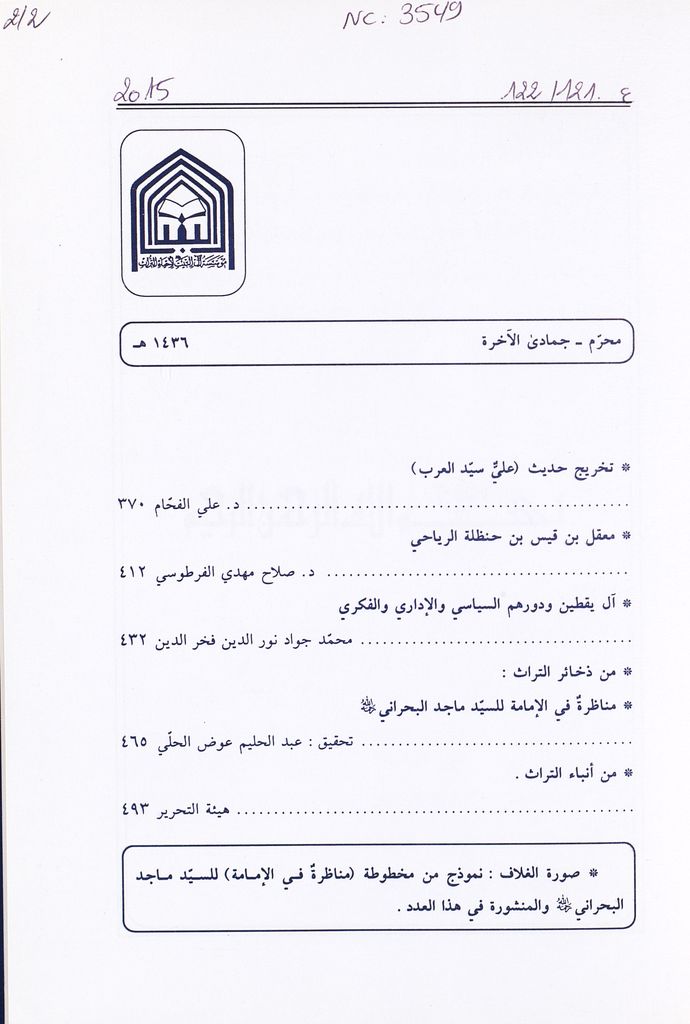 2/2
NC: 3549
2015
ع .121/ 122
مؤسسة آل البيت لإحياء التراث
محرّم ـ جمادىٰ الآخرة ١٤٣٦ هـ
* تخريج حديث (عليٌّ سيّد العرب)
............................................. د. علي الفحّام ٣٧٠
* معقل بن قيس بن حنظلة الرياحي
................................... د. صلاح مهدي الفرطوسي ٤١٢
* آل يقطين ودورهم السياسي والإداري والفكري
................................ محمّد جواد نور الدين فخر الدين ٤٣٢
* من ذخائر التراث :
* مناظرةٌ في الإمامة للسيّد ماجد البحراني ﷺ
................................ تحقيق : عبد الحليم عوض الحلّي ٤٦٥
* من أنباء التراث .
............................................... هيئة التحرير ٤٩٣
* صورة الغلاف : نموذج من مخطوطة (مناظرةٌ في الإمامة) للسيّد ماجد
البحراني والمنشورة في هذا العدد .